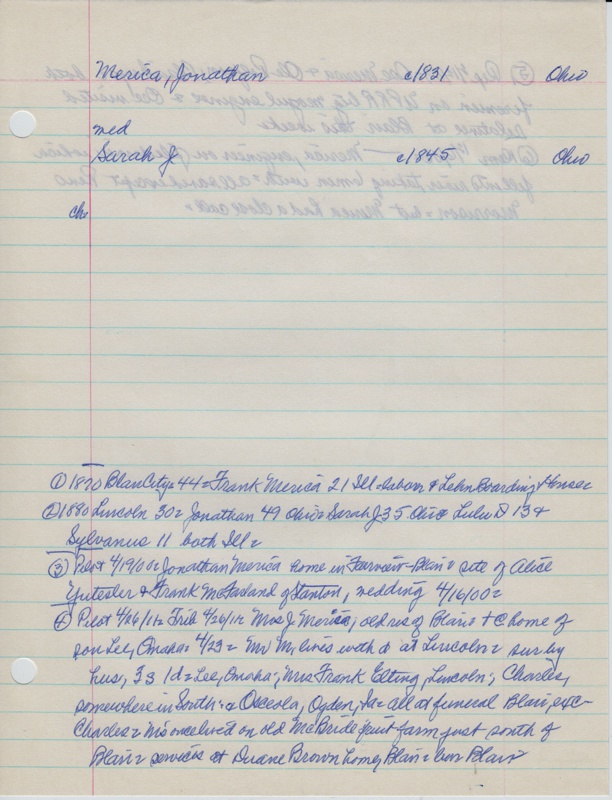 Merica, Jonathan c1831 Ohio
med
Sarah J c1845 Ohio
ch:
① 1870 Blair City = 44 = Frank Merica 21 Ill = laborer & Lehn Boarding House
② 1880 Lincoln 30 = Jonathan 49 Ohio = Sarah J 35 Ohio Lulu D 13 &
Sylvanus 11 both Ill =
③ Pilot 4/19/00 = Jonathan Merica home in Fairview = Blair = site of Alice
& Frank McFarland of Stanton, wedding 4/16/00 =
④ Pilot 4/26/11 = Trib 4/26/11 = Mrs J Merica, old res of Blair = + @ home of
son Lee, Omaha = 4/23 = Mr M lives with d at Lincoln = sur by
hus, 3s 1d = Lee, Omaha; Mrs Frank Elting, Lincoln; Charles,
somewhere in South; & Osceola, Ogden, = all at funeral Blair, exc
Charles = M's once lived on old McBride fruit farm just south of
Blair = services at Duane Brown home, Blair = bur Blair